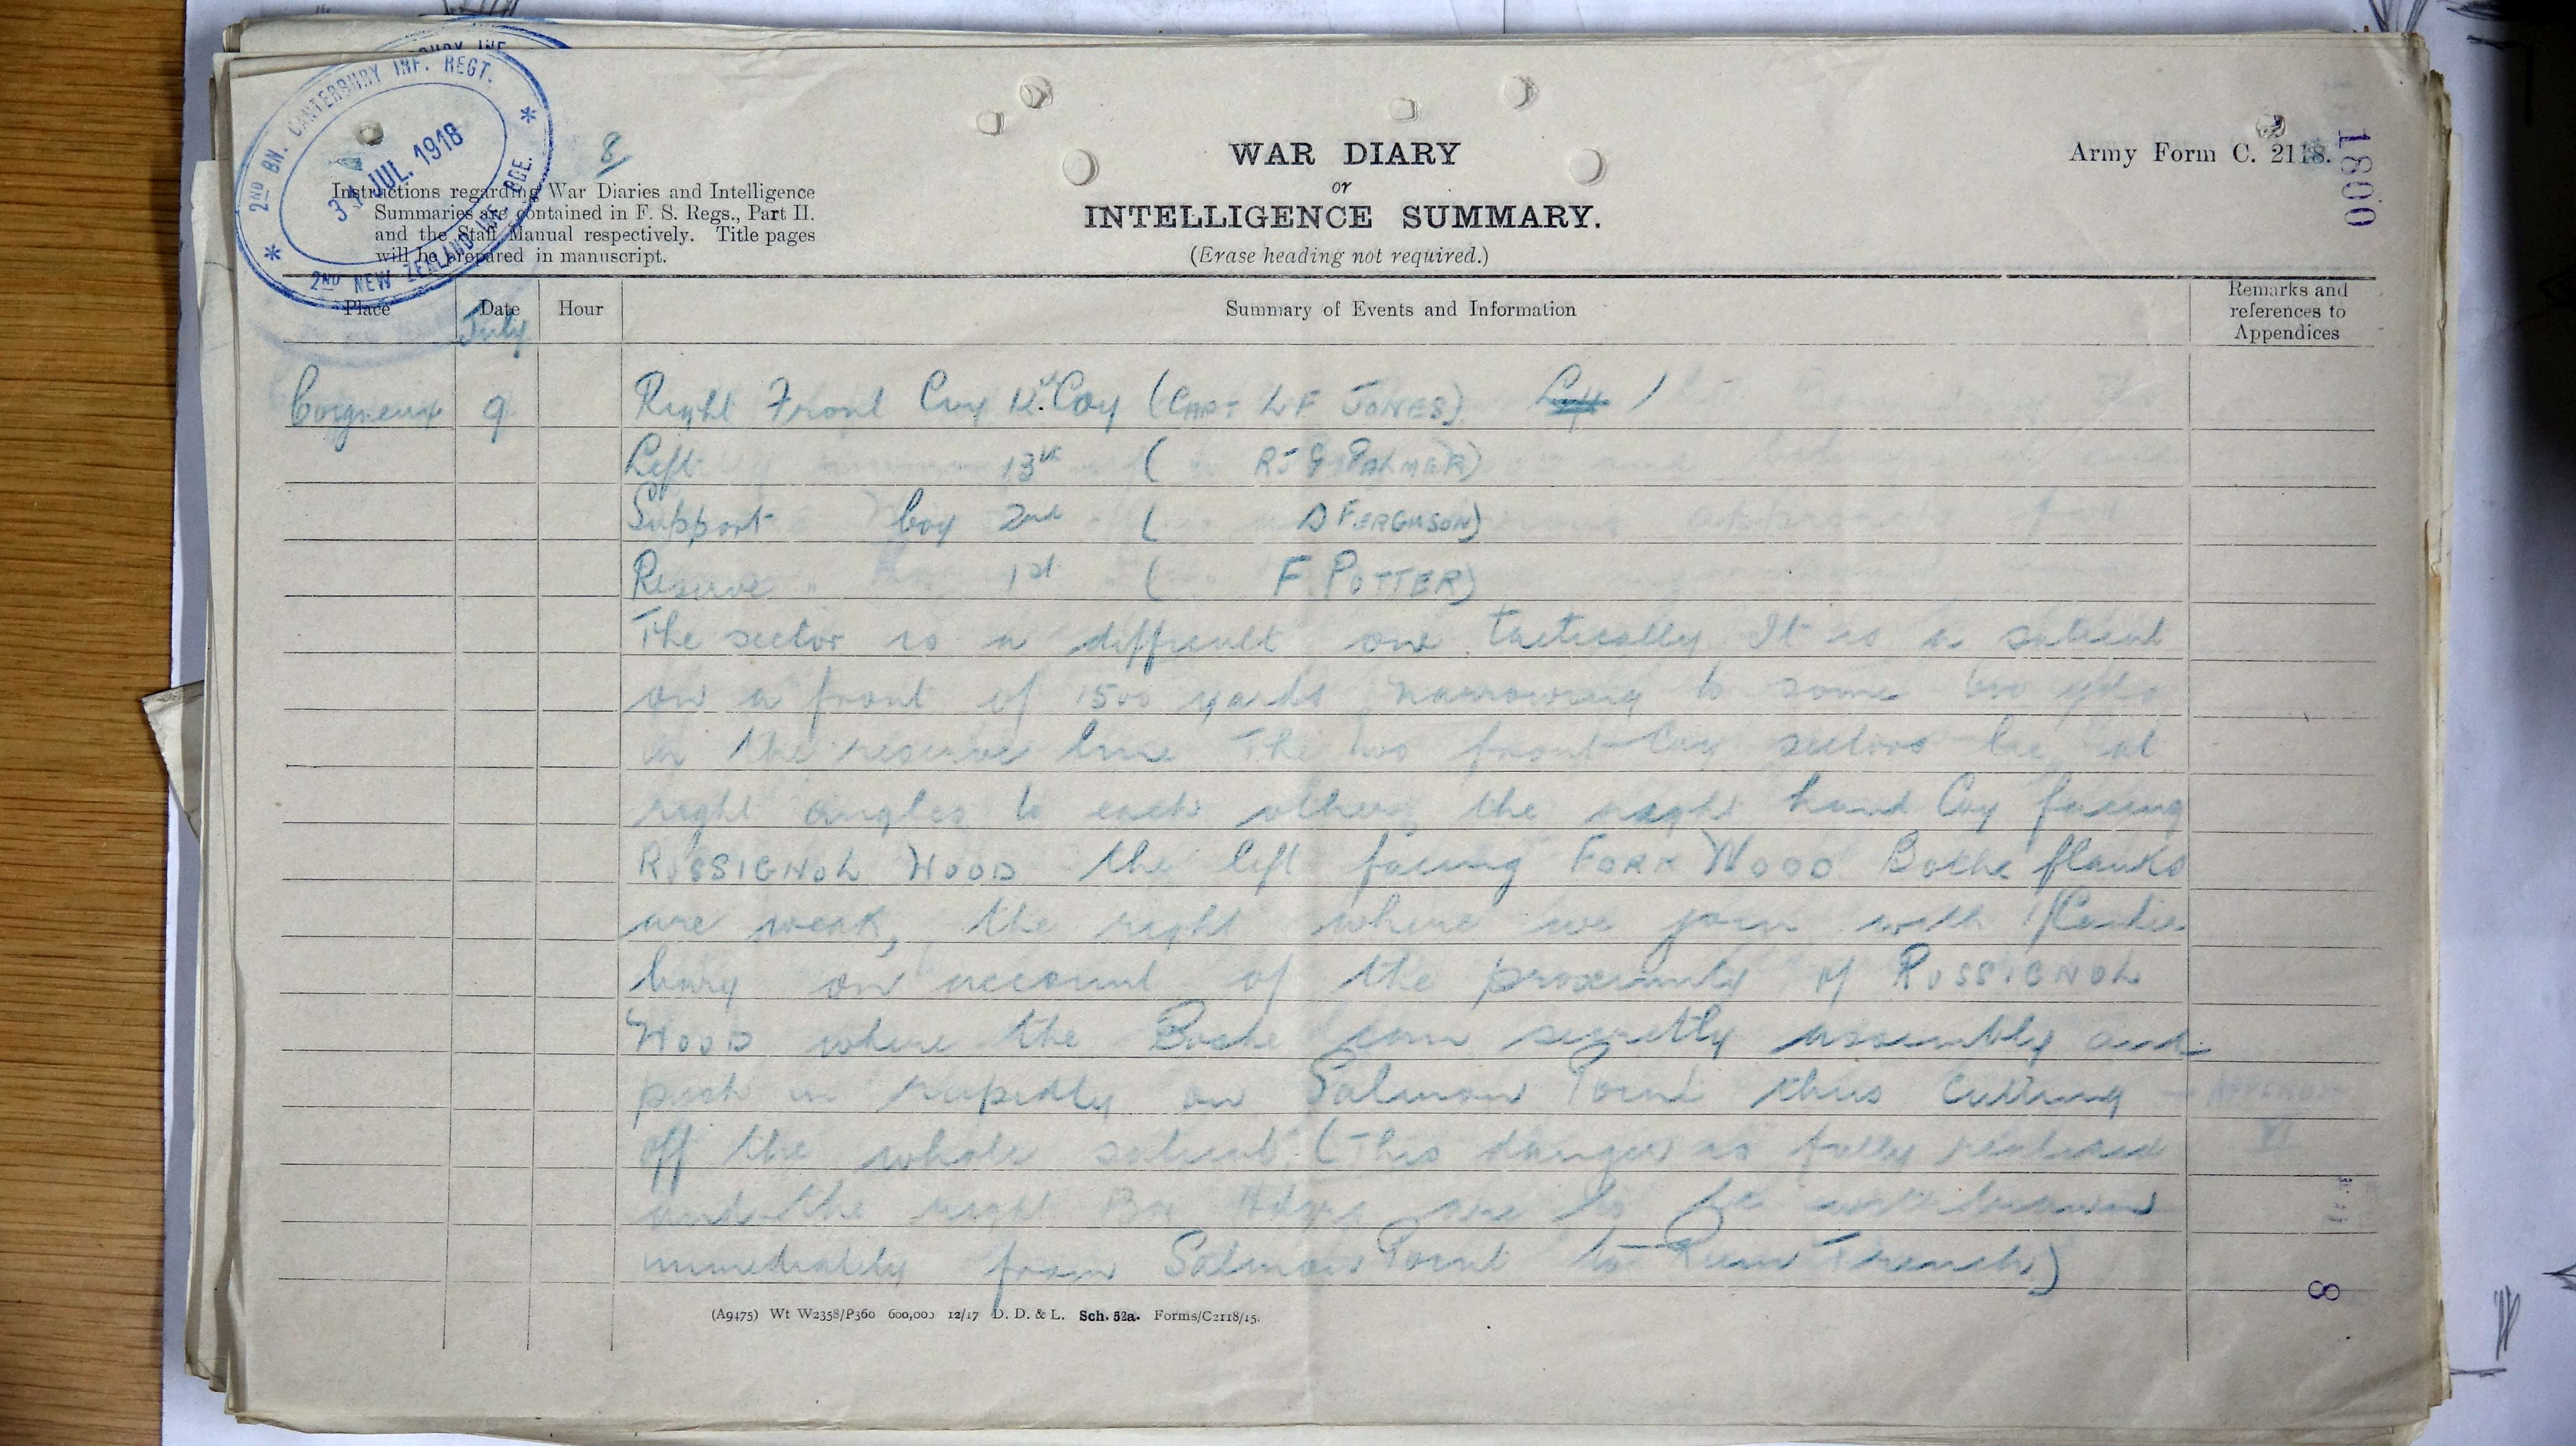 2ND BN. CANTERBURY INF. REGT.
31 JUL. 1918
2ND NEW ZEALAND INF. BDE.
8
Instructions regarding War Diaries and Intelligence
Summaries are contained in F. S. Regs., Part II.
and the Staff Manual respectively. Title pages
will be prepared in manuscript.
WAR DIARY
or
INTELLIGENCE SUMMARY.
(Erase heading not required.)
Army Form C. 2118.
1800
Place Date Hour Summary of Events and Information Remarks and references to Appendices
July
Coigneux 9 Right Front Coy 12th Coy (CAPT L F JONES)
Left 13th ( R J G PALMER)
Support Coy 2nd ( D FERGUSON)
Reserve " 1st ( F POTTER)
The sector is a difficult one tactically It is a salient
on a front of 1500 yards narrowing to some 600 yds
in the reserve line The two front Coy sectors lie at
right angles to each other, the right hand Coy facing
ROSSIGNOL WOOD the left facing FORK WOOD Bothe flanks
are weak, the right where we join with 1/Canter
bury on account of the proximity of ROSSIGNOL
WOOD where the Boche can secretly assembly and
push in rapidly on Salmon Point thus cutting APPENDIX
off the whole salient. (This danger is fully realised VI
and the right Bn Hdqrs are to be withdrawn
immediately from Salmon Point to Rum Trench)
8
(A9475) Wt W2358/P360 600,000 12/17 D. D. & L. Sch. 52a. Forms/C2118/15.